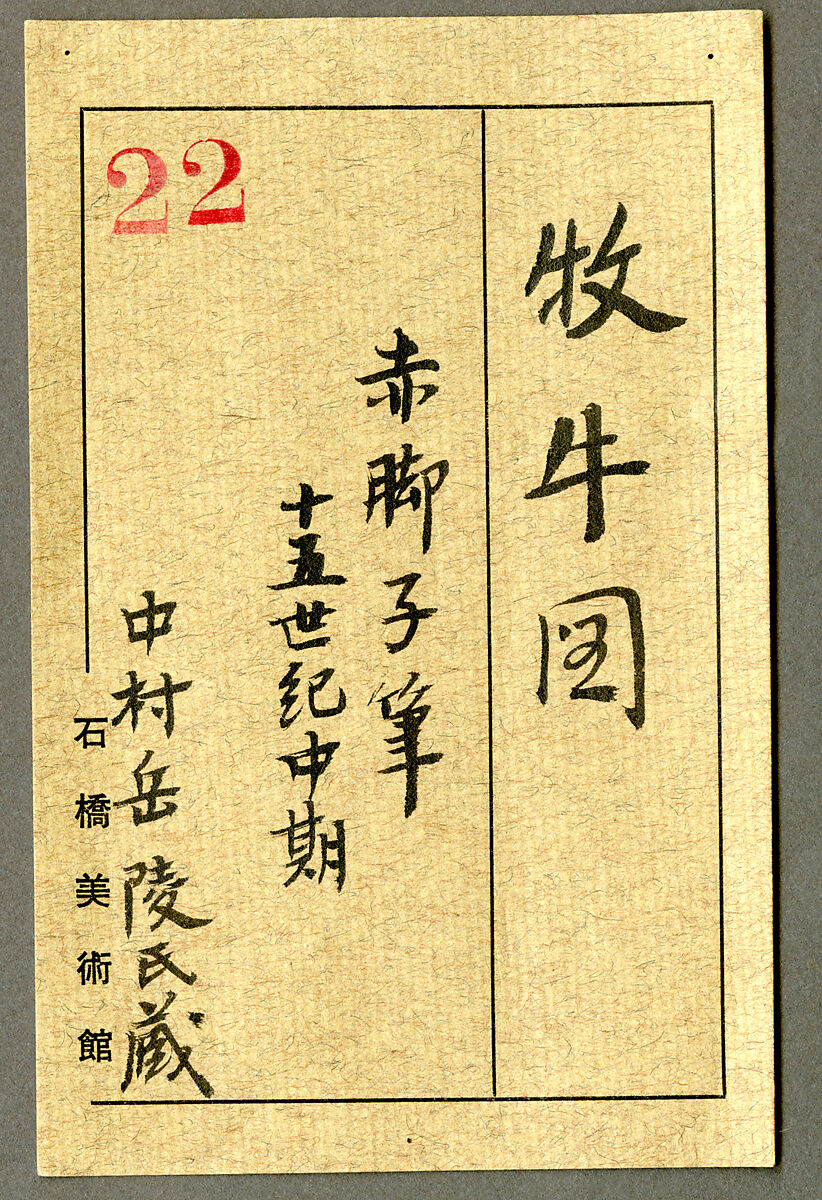 牧牛図
赤脚子筆
十五世紀中期
中村岳陵氏蔵
石橋美術館
22